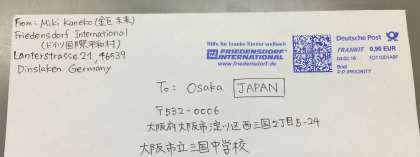 From: Miki Kaneko (金臣 未来)
Friedensdorf International
(ドイツ国際平和村)
Lanterstrasse 21, 46539
Dinslaken Germany
Hilfe für kranke Kinder weltweit
FRIEDENSDORF
INTERNATIONAL
www.friedensdorf.de
Deutsche Post
FRANKIT 0,90 EUR
04.02.16
Brief
P.P. PRIORITY
To: Osaka JAPAN
〒532-0006
大阪府大阪市淀川区西三国2丁目5-24
大阪市立三国中学校